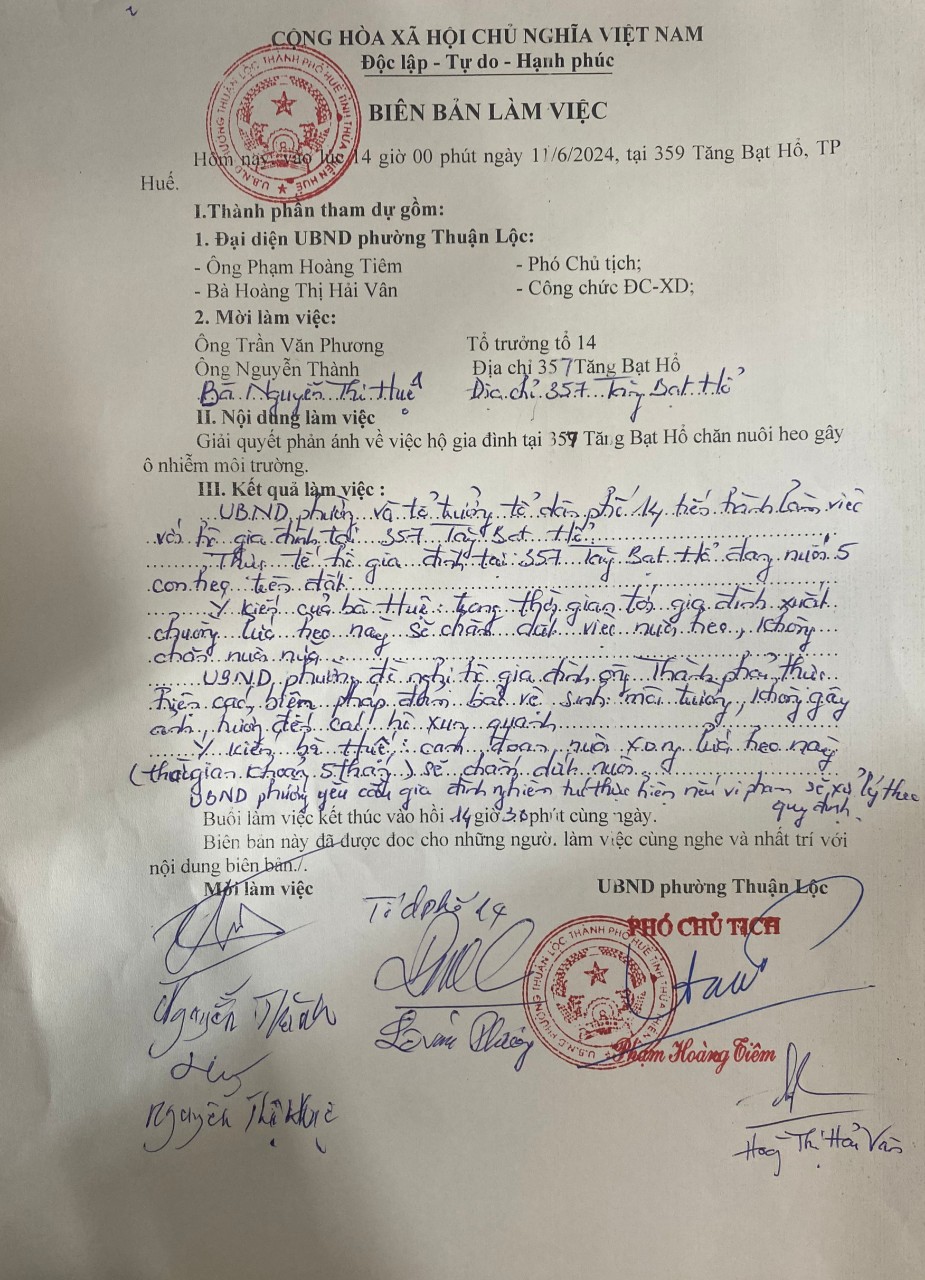 CỘNG HÒA XÃ HỘI CHỦ NGHĨA VIỆT NAM
Độc lập - Tự do - Hạnh phúc
U.B.N.D PHƯỜNG THUẬN LỘC THÀNH PHỐ HUẾ TỈNH THỪA THIÊN HUẾ
BIÊN BẢN LÀM VIỆC
Hôm nay, vào lúc 14 giờ 00 phút ngày 11/6/2024, tại 359 Tăng Bạt Hổ, TP
Huế.
I.Thành phần tham dự gồm:
1. Đại diện UBND phường Thuận Lộc:
- Ông Phạm Hoàng Tiêm - Phó Chủ tịch;
- Bà Hoàng Thị Hải Vân - Công chức ĐC-XD;
2. Mời làm việc:
Ông Trần Văn Phương Tổ trưởng tổ 14
Ông Nguyễn Thành Địa chỉ 357 Tăng Bạt Hổ
Bà Nguyễn Thị Huệ Địa chỉ 357 Tăng Bạt Hổ
II. Nội dung làm việc
Giải quyết phản ánh về việc hộ gia đình tại 357 Tăng Bạt Hổ chăn nuôi heo gây
ô nhiễm môi trường.
III. Kết quả làm việc :
UBND phường và tổ trưởng tổ dân phố 14 tiến hành làm việc
với hộ gia đình tại 357 Tăng Bạt Hổ.
Thực tế hộ gia đình tại 357 Tăng Bạt Hổ đang nuôi 5
con heo trên đất.
Ý kiến của bà Huệ: trong thời gian tới gia đình xuất
chuồng lứa heo này sẽ chấm dứt việc nuôi heo, không
chăn nuôi nữa.
UBND phường đề nghị hộ gia đình ông Thành phải thực
hiện các biện pháp đảm bảo vệ sinh môi trường, không gây
ảnh hưởng đến các hộ xung quanh.
Ý kiến bà Huệ: cam đoan nuôi xong lứa heo này
(thời gian khoảng 5 tháng) sẽ chấm dứt nuôi.
UBND phường yêu cầu gia đình nghiêm túc thực hiện nếu vi phạm sẽ xử lý theo
quy định.
Buổi làm việc kết thúc vào hồi 14 giờ 30 phút cùng ngày.
Biên bản này đã được đọc cho những người làm việc cùng nghe và nhất trí với
nội dung biên bản./.
Mời làm việc UBND phường Thuận Lộc
Tổ dphố 14
PHÓ CHỦ TỊCH
U.B.N.D PHƯỜNG THUẬN LỘC THÀNH PHỐ HUẾ TỈNH THỪA THIÊN HUẾ
Nguyễn Thành
Phạm Hoàng Tiêm
Nguyễn Thị Huệ
Hoàng Thị Hải Vân